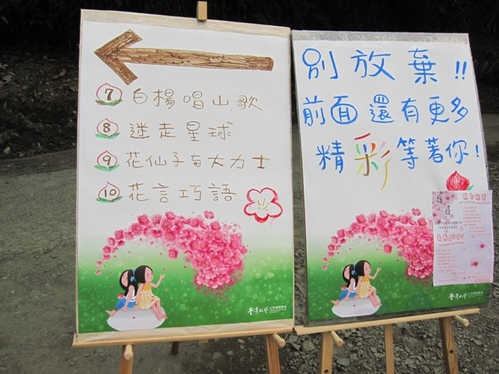 7 白楊唱山歌
8 迷走星球
9 花仙子與大力士
10 花言巧語
別放棄!!
前面還有更多
精彩等著你!